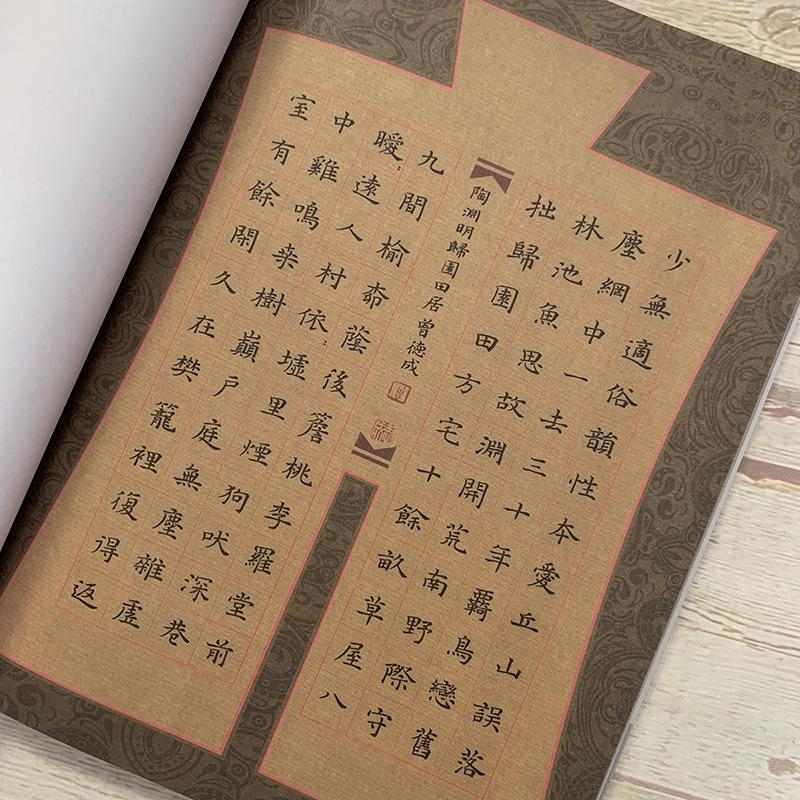 少無適俗韻性本愛丘山誤落
塵網中一去三十年覊鳥戀舊
林池魚思故淵開荒南野際守
拙歸園田方宅十餘畝草屋八
陶淵明歸園田居 曾德成
九間榆柳蔭後簷桃李羅堂前
曖〻遠人村依〻墟里煙狗吠深巷
中雞鳴桒樹巔戶庭無塵雜虛
室有餘閑久在樊籠裡復得返